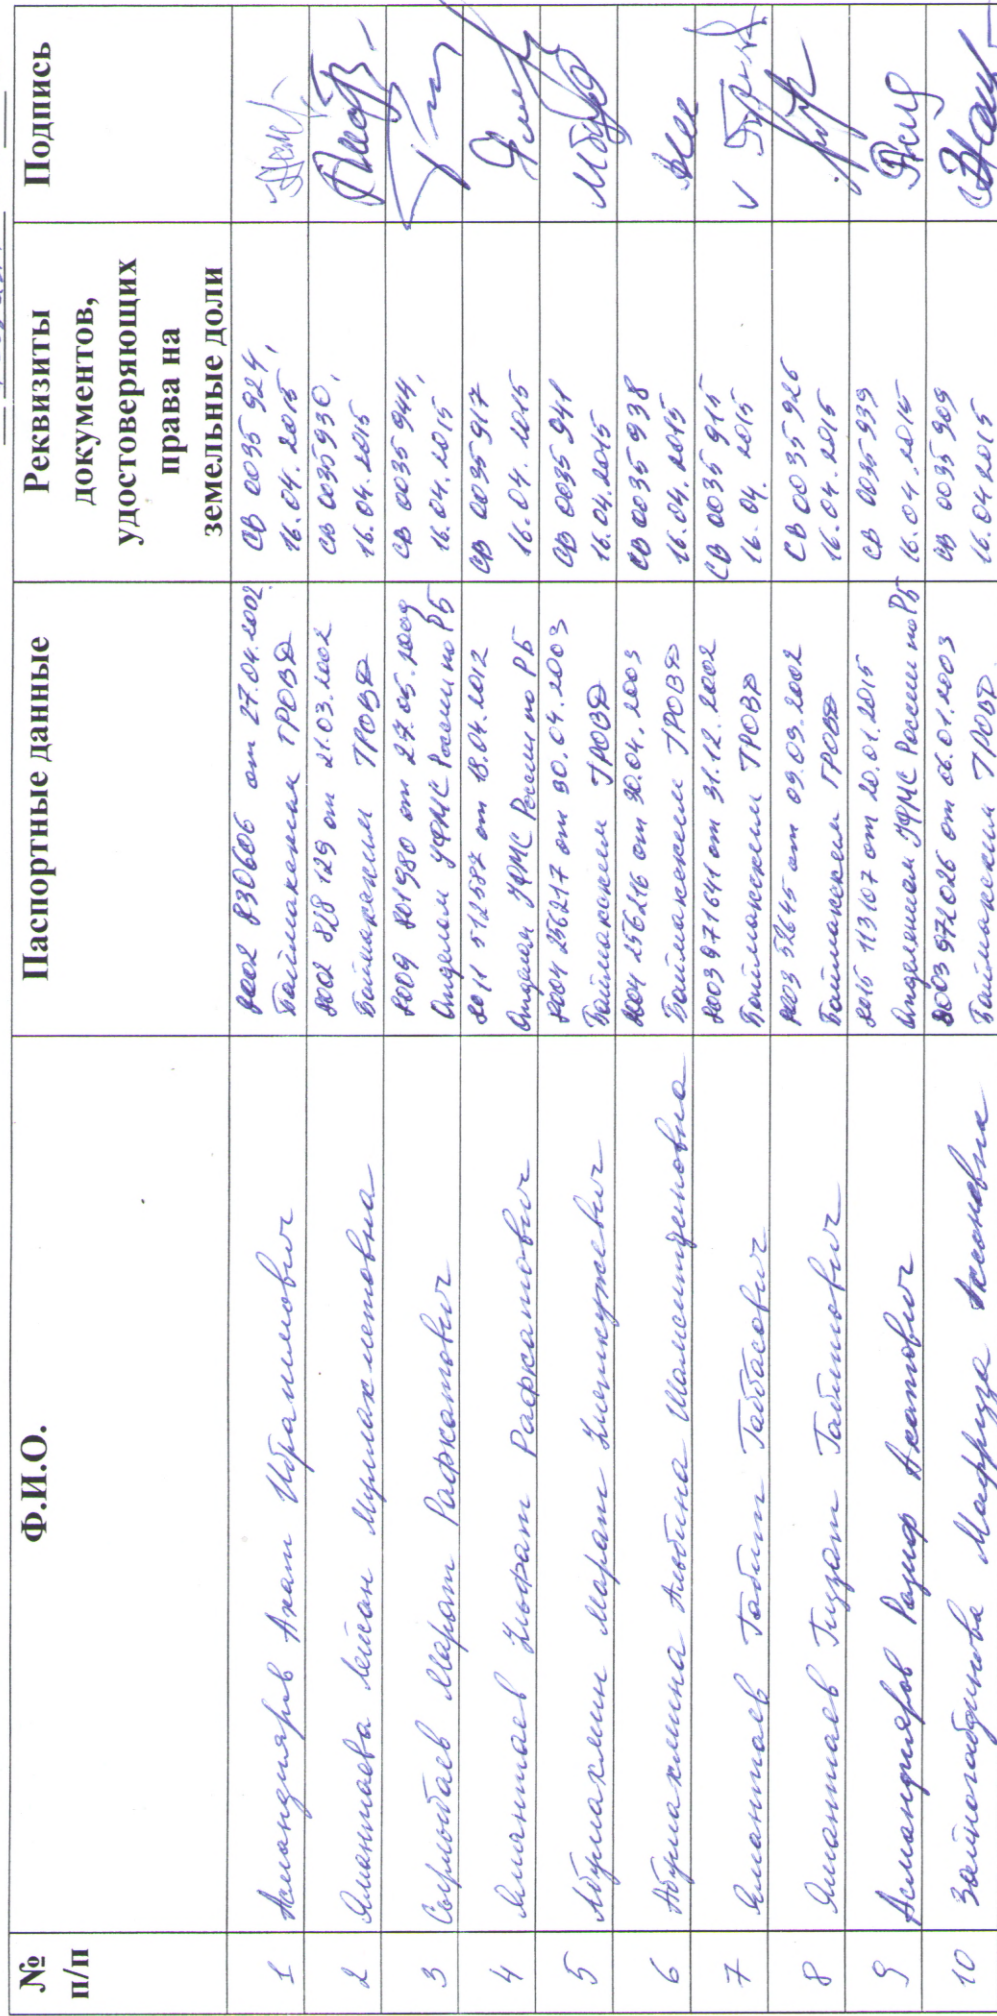 №
п/п
Ф.И.О.
Паспортные данные
Реквизиты
документов,
удостоверяющих
права на
земельные доли
Подпись
1
Асмандияров Ахат Ибрагимович
8002 830606 от 27.04.2002
Баймакским ГРОВД
СВ 0035 924,
16.04.2015
2
Ямантаева Лейсан Мурзахметовна
8002 828 129 от 21.03.2002
Баймакским ГРОВД
СВ 0035930,
16.04.2015
3
Сырлыбаев Марат Рафкатович
8009 801980 от 27.05.2009
Отделом УФМС России по РБ
СВ 0035 944,
16.04.2015
4
Ямантаев Ульфат Рафкатович
8011 512587 от 18.04.2012
Отделом УФМС России по РБ
СВ 0035 917
16.04.2015
5
Абдрахмин Марат
8004 256217 от 30.04.2003
Баймакским ГРОВД
СВ 0035 941
16.04.2015
6
Альбина Шамситдиновна
8004 256216 от 30.04.2003
Баймакским ГРОВД
СВ 0035 938
16.04.2015
7
Ямантаев Габит Габбасович
8003 971641 от 31.12.2002
Баймакским ГРОВД
СВ 0035 915
16.04.2015
8
Ямантаев Гиззат Габитович
8003 52645 от 09.09.2002
Баймакским ГРОВД
СВ 0035 926
16.04.2015
9
Асмандияров Разиф Ахатович
8015 113107 от 20.01.2015
Отделением УФМС России по РБ
СВ 0035 939
16.04.2015
10
Зайнагабдинова Мафруза
8003 972026 от 06.01.2003
Баймакским ГРОВД
СВ 0035 909
16.04.2015